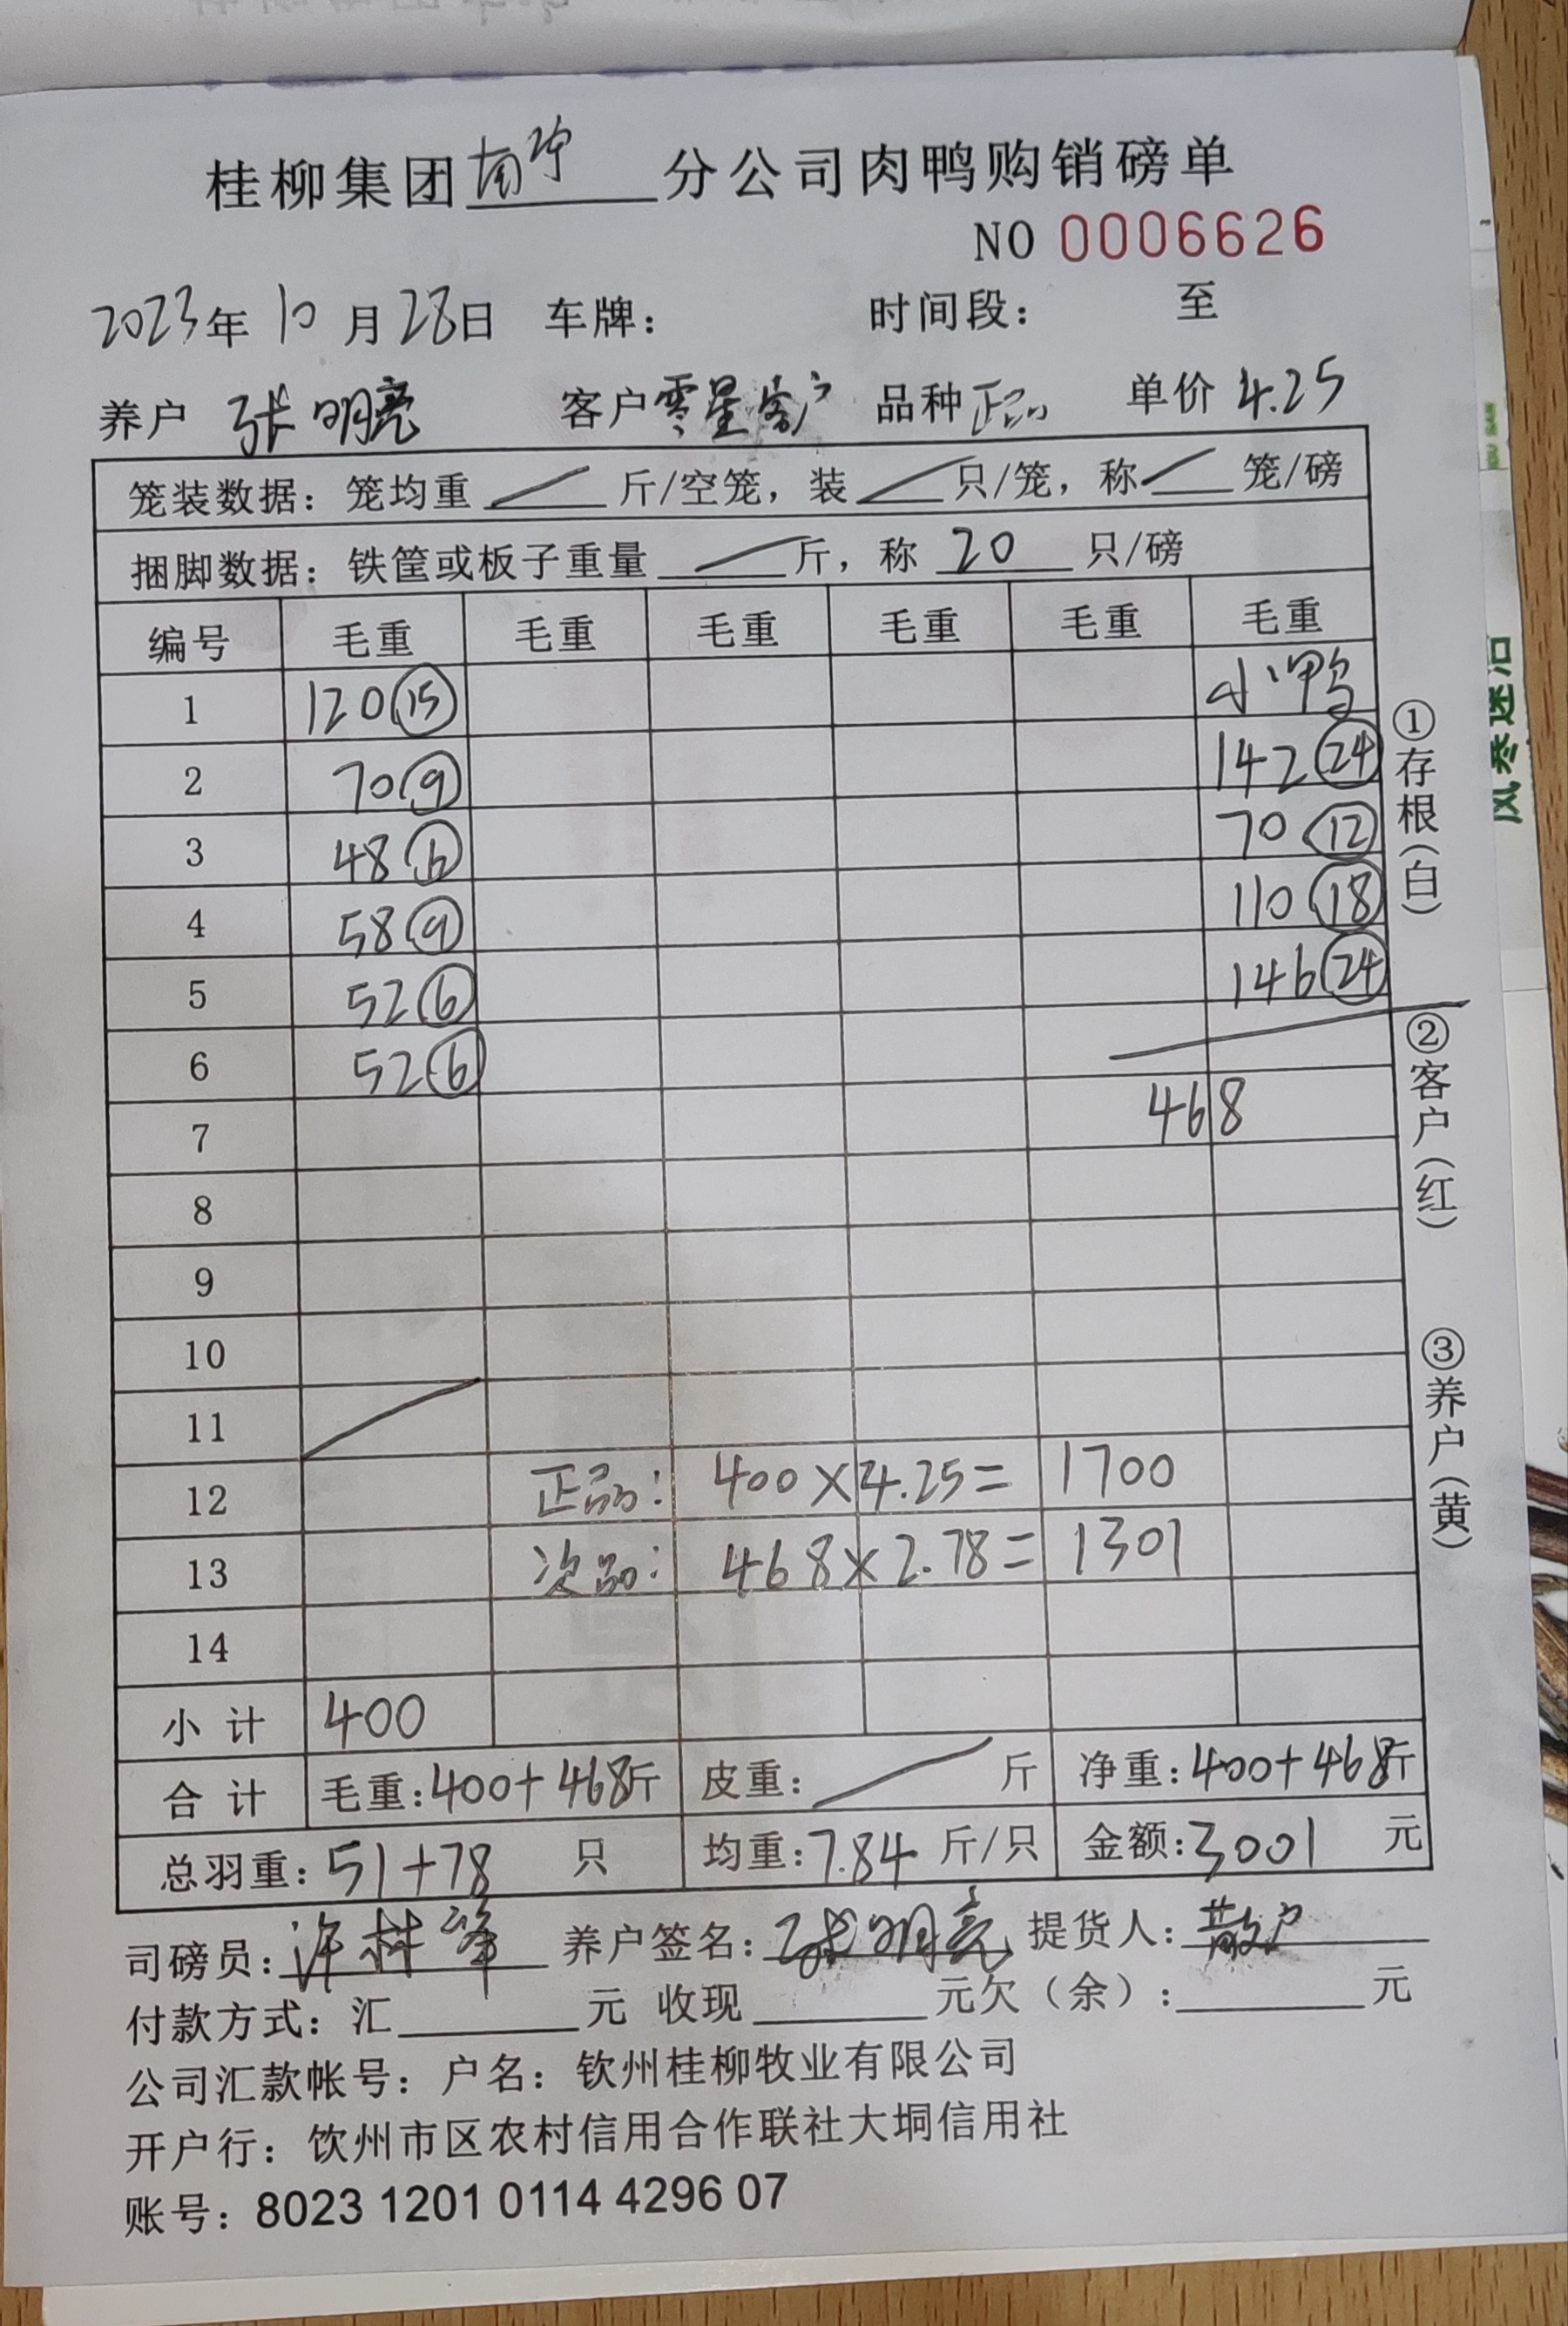 桂柳集团南宁分公司肉鸭购销磅单
NO 0006626
2023年 10 月 28日 车牌: 时间段: 至
养户 张明亮 客户 零星客户 品种 正品 单价 4.25
笼装数据: 笼均重 斤/空笼, 装 只/笼, 称 笼/磅
捆脚数据: 铁筐或板子重量 斤, 称 20 只/磅
编号 毛重 毛重 毛重 毛重 毛重 毛重
1 120 ⑮ 小鸭
2 70 ⑨ 142 ㉔
3 48 ⑥ 70 ⑫
4 58 ⑨ 110 ⑱
5 52 ⑥ 146 ㉔
6 52 ⑥
7 468
8
9
10
11
12 正品: 400×4.25= 1700
13 次品: 468×2.78= 1301
14
小计 400
合计 毛重:400+468斤 皮重: 斤 净重:400+468斤
总羽重:51+78 只 均重:7.84 斤/只 金额:3001 元
司磅员: 许林峰 养户签名: 张明亮 提货人: 散户
付款方式: 汇 元 收现 元欠(余): 元
公司汇款帐号: 户名: 钦州桂柳牧业有限公司
开户行: 饮州市区农村信用合作联社大垌信用社
账号: 8023 1201 0114 4296 07
①存根(白)
②客户(红)
③养户(黄)
风寒迷沿